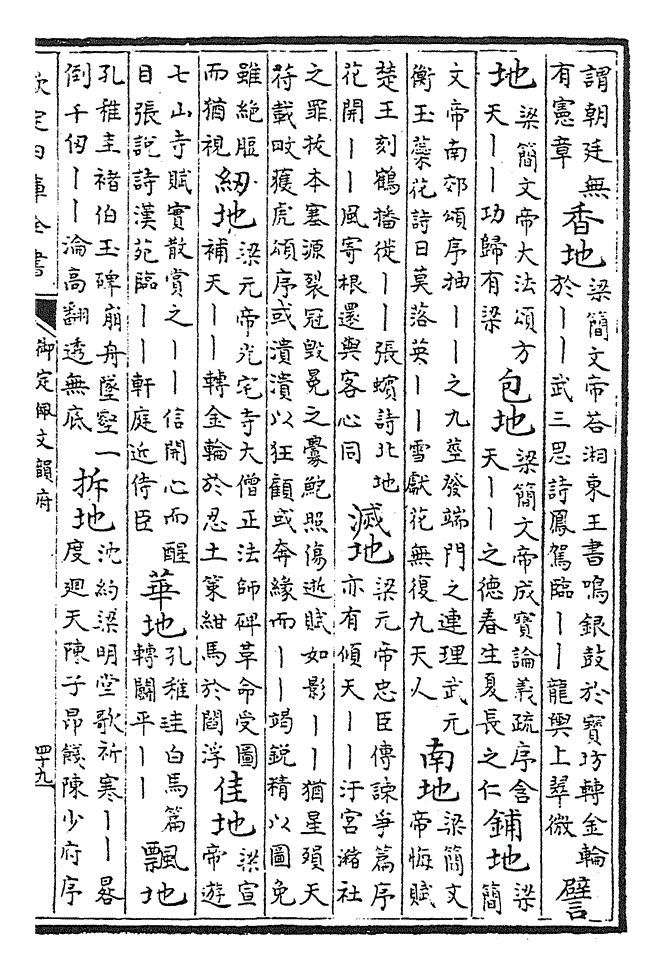 謂朝廷無
有憲章
香地
梁簡文帝荅湘東王書鳴銀鼓於寳坊轉金輪
於丨丨武三思詩鳳駕臨丨丨龍輿上翠微
譬
地
梁簡文帝大法頌方
天丨丨功歸有梁
包地
梁簡文帝成實論義疏序含
天丨丨之德春生夏長之仁
鋪地
梁
簡
文帝南郊頌序抽丨丨之九莖發端門之連理武元
衡玉蘂花詩日莫落英丨丨雪獻花無復九天人
南地
梁簡文
帝悔賦
楚王刻鶴播徙丨丨張蠙詩北地
花開丨丨風寄根還與客心同
滅地
梁元帝忠臣傳諫爭篇序
亦有傾天丨丨汙宮瀦社
之罪拔本塞源裂冠毁冕之釁鮑照傷逝賦如影丨丨猶星殞天
苻載畋獲虎頌序或潰潰以狂顧或奔緣而丨丨竭鋭精以圖免
雖絶脰
而猶視
紉地
梁元帝光宅寺大僧正法師碑革命受圖
補天丨丨轉金輪於忍土策紺馬於閻浮
佳地
梁宣
帝遊
七山寺賦實散賞之丨丨信開心而醒
目張説詩漢苑臨丨丨軒庭近侍臣
華地
孔稚珪白馬篇
轉闘平丨丨
飄地
孔稚圭褚伯玉碑崩舟墜壑一
倒千仞丨丨淪高翻透無底
拆地
沈約梁明堂歌祈寒丨丨晷
度迴天陳子昻餞陳少府序
欽定四庫全書
御定佩文韻府
四十九